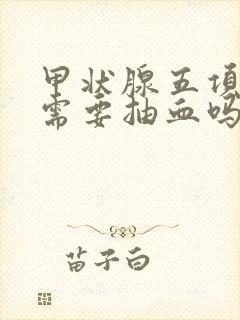 甲状腺五项
需要抽血吗
苗子白